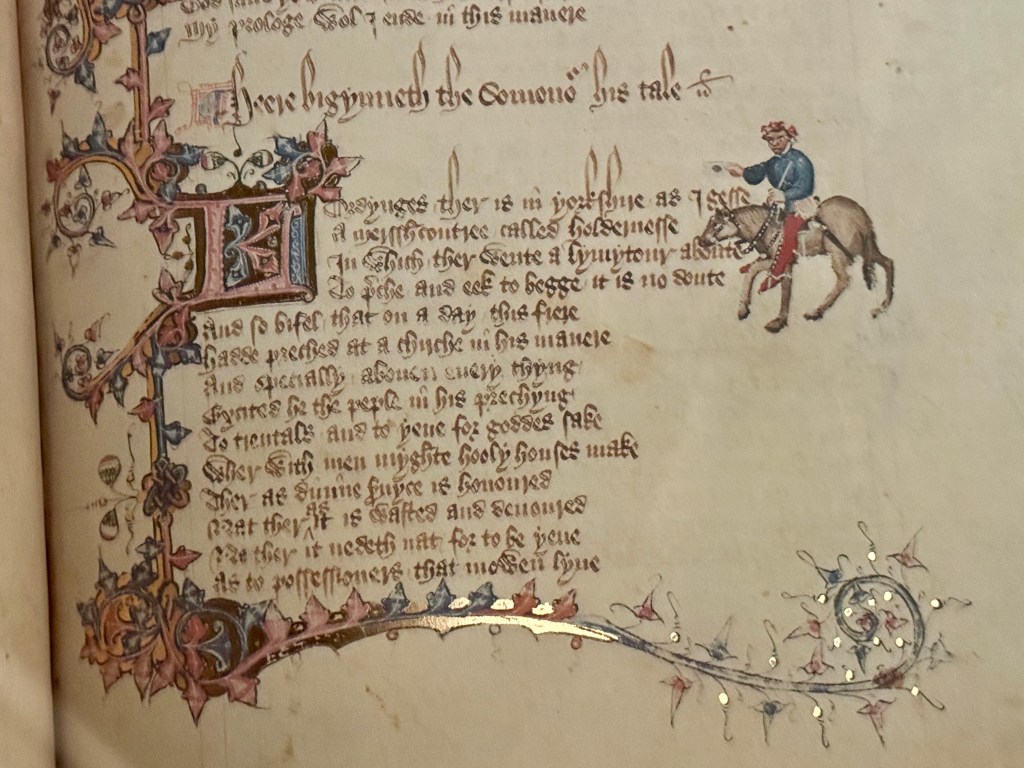 my prologe wol I ende in this manere
Heere bigynneth the Somonor his tale
Lordynges ther is in yorkshire as I gesse
A mersshcontree called holdernesse
In which ther wente a lymytour aboute
To p̱che and eek to begge it is no doute
And so bifel that on a day this frere
hadde preched at a chirche in his manere
And specially abouen euery thyng
Excited he the peple in his prechyng
To trentals and to yeue for goddes sake
Wher with men myghte hooly houses make
Ther as diuine seruyce is honoured
Nat ther as it is wasted and deuoured
Ne ther it nedeth nat for to be yeue
As to possessioners that mowen lyue